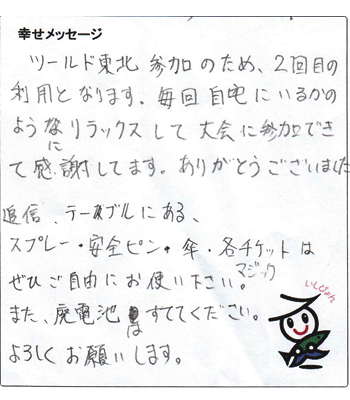 幸せメッセージ
ツールド東北 参加のため、2回目の
利用となります。毎回自宅にいるかの
ようにリラックスして大会に参加でき
て感謝してます。ありがとうございました
返信、テーブルにある、
スプレー・安全ピン・傘・各チケットは
マジック
ぜひご自由にお使い下さい。
また、廃電池はすててください。
よろしくお願いします。
いしぴょん